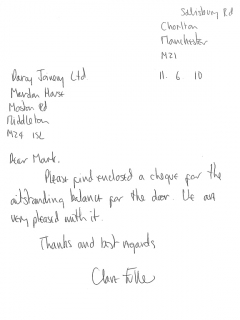 Salisbury Rd
Chorlton
Manchester
M21
Darcy Joinery Ltd
11. 6 10
Mardan House
Moston Rd
Middleton
M24 1SL
Dear Mark,
Please find enclosed a cheque for the
outstanding balance for the door. We are
very pleased with it.
Thanks and best regards
Clare